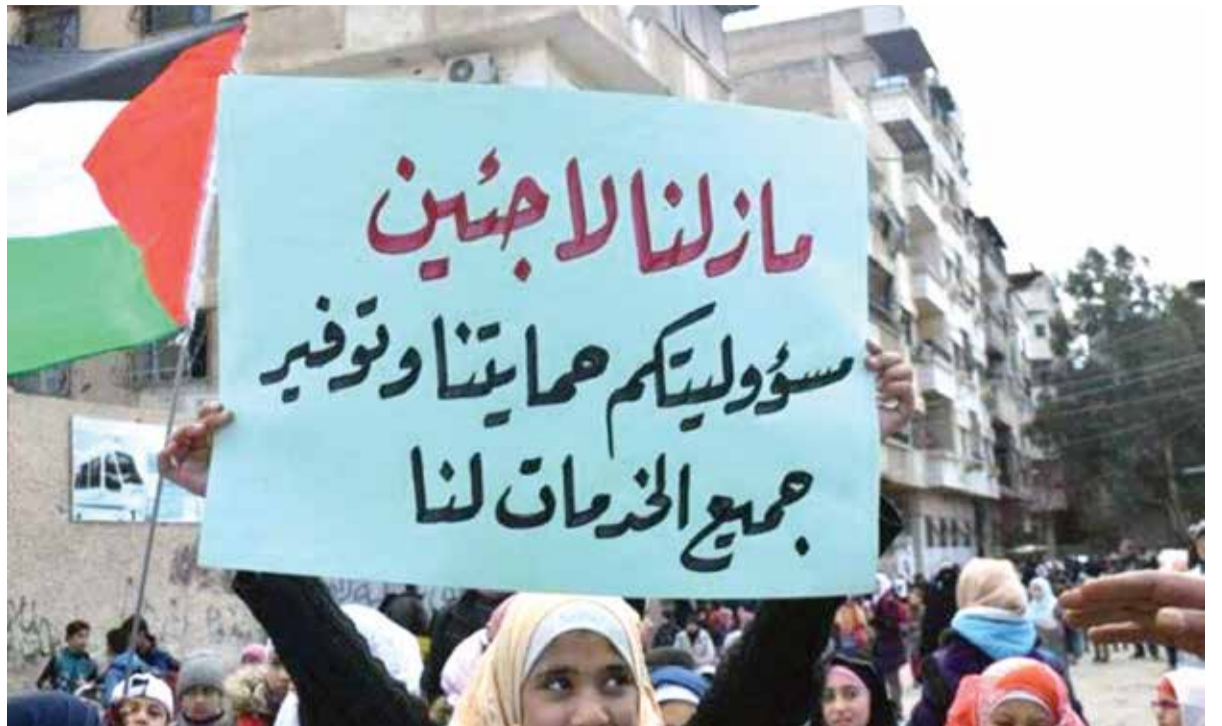 مازلنا لاجئين
مسؤوليتكم حمايتنا وتوفير
جميع الخدمات لنا